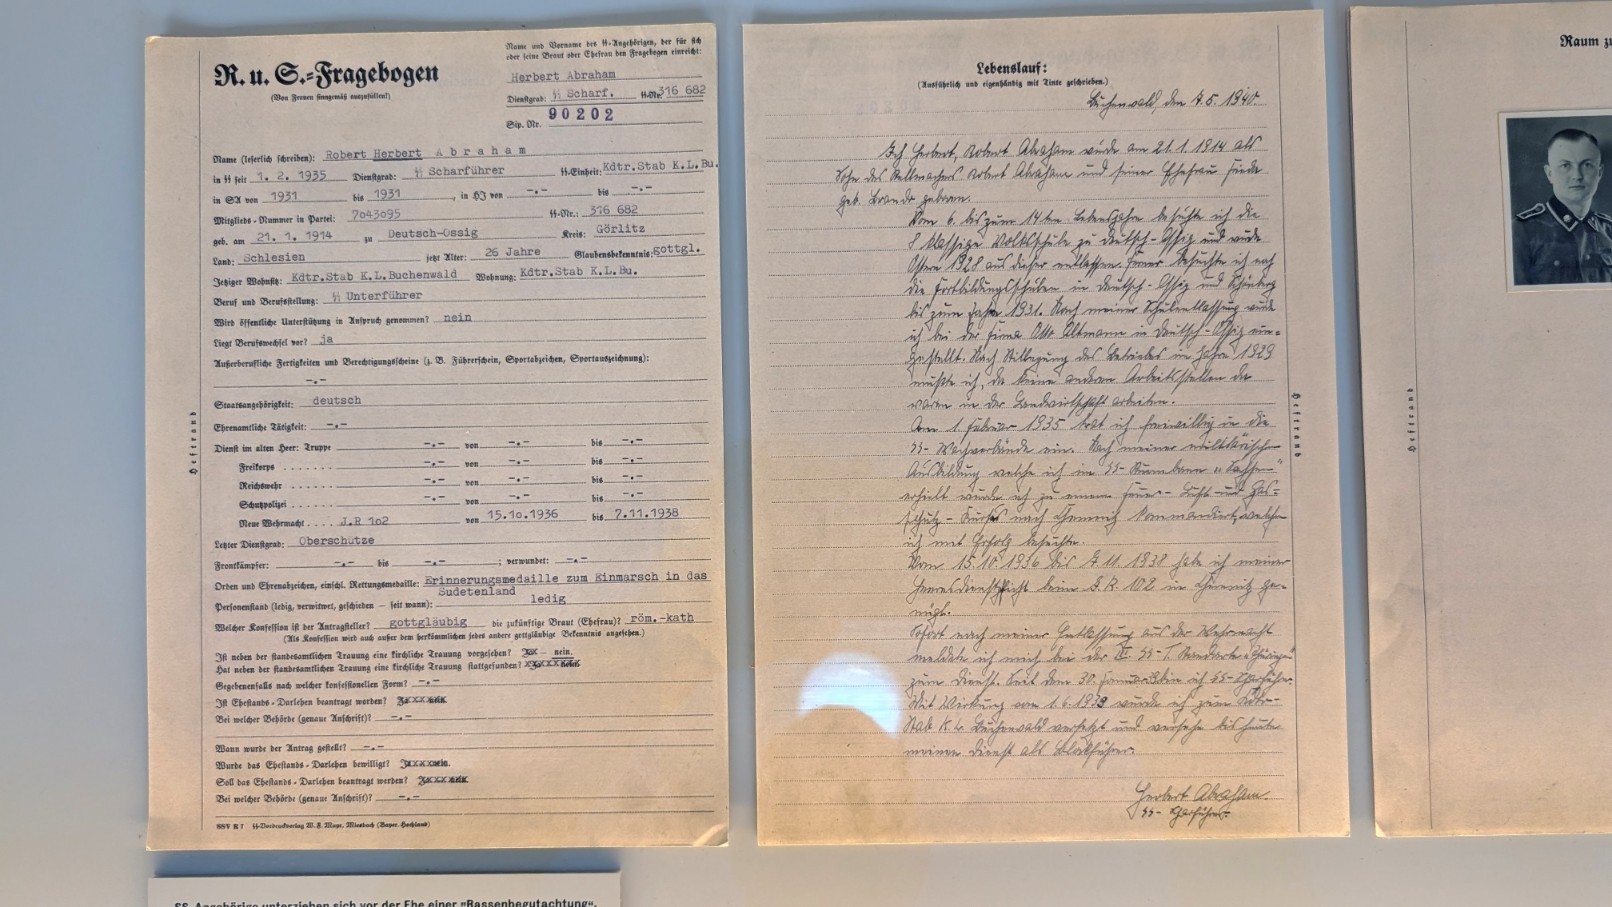 Name und Vorname des SS-Angehörigen, der für sich
oder seine Braut oder Ehefrau den Fragebogen einreicht:
R. u. S.=Fragebogen
(Von Frauen sinngemäß auszufüllen!)
Herbert Abraham
Dienstgrad: SS Scharf. SS-Nr. 316 682
Sip. Nr. 90202
Name (leserlich schreiben): Robert Herbert Abraham
in SS seit 1. 2. 1935 Dienstgrad: SS Scharführer SS-Einheit: Kdtr.Stab K.L.Bu.
in SA von 1931 bis 1931, in HJ von -.- bis -.-
Mitglieds-Nummer in Partei: 7043095 SS-Nr.: 316 682
geb. am 21. 1. 1914 zu Deutsch-Ossig Kreis: Görlitz
Land: Schlesien jetzt Alter: 26 Jahre Glaubensbekenntnis: gottgl.
Jetziger Wohnsitz: Kdtr.Stab K.L.Buchenwald Wohnung: Kdtr.Stab K.L.Bu.
Beruf und Berufsstellung: SS Unterführer
Wird öffentliche Unterstützung in Anspruch genommen? nein
Liegt Berufswechsel vor? ja
Außerberufliche Fertigkeiten und Berechtigungsscheine (z. B. Führerschein, Sportabzeichen, Sportauszeichnung):
-.-
Staatsangehörigkeit: deutsch
Ehrenamtliche Tätigkeit: -.-
Dienst im alten Heer: Truppe -.- von -.- bis -.-
Freikorps ....... -.- von -.- bis -.-
Reichswehr ...... -.- von -.- bis -.-
Schutzpolizei ...... -.- von -.- bis -.-
Neue Wehrmacht .... J.R 102 von 15.10.1936 bis 7.11.1938
Letzter Dienstgrad: Oberschütze
Frontkämpfer: -.- bis -.- ; verwundet: -.-
Orden und Ehrenabzeichen, einschl. Rettungsmedaille: Erinnerungsmedaille zum Einmarsch in das
Sudetenland
Personenstand (ledig, verwitwet, geschieden — seit wann): ledig
Welcher Konfession ist der Antragsteller? gottgläubig die zukünftige Braut (Ehefrau)? röm.-kath
(Als Konfession wird auch außer dem herkömmlichen jedes andere gottgläubige Bekenntnis angesehen.)
Ist neben der standesamtlichen Trauung eine kirchliche Trauung vorgesehen? Ja - nein.
Hat neben der standesamtlichen Trauung eine kirchliche Trauung stattgefunden? Ja - nein.
Gegebenenfalls nach welcher konfessionellen Form? -.-
Ist Ehestands-Darlehen beantragt worden? Ja - nein.
Bei welcher Behörde (genaue Anschrift)? -.-
Wann wurde der Antrag gestellt? -.-
Wurde das Ehestands-Darlehen bewilligt? Ja - nein.
Soll das Ehestands-Darlehen beantragt werden? Ja - nein.
Bei welcher Behörde (genaue Anschrift)? -.-
SSV K 7 SS-Vordruckverlag W. F. Mayr, Miesbach (Bayer. Hochland)
Heftrand
Lebenslauf:
(Ausführlich und eigenhändig mit Tinte geschrieben.)
Buchenwald, den 7.5. 1940.
Ich Herbert, Robert Abraham wurde am 21.1.1914 als
Sohn des Stellmachers Robert Abraham und seiner Ehefrau Frieda
geb. Brande geboren.
Vom 6. bis zum 14ten Lebensjahre besuchte ich die
8 klassige Volksschule zu Deutsch-Ossig und wurde
Ostern 1928 aus dieser entlassen. Ferner besuchte ich noch
die Fortbildungsschulen in Deutsch-Ossig und Schönberg
bis zum Jahre 1931. Nach meiner Schulentlassung wurde
ich bei der Firma Otto Altmann in Deutsch-Ossig ein=
gestellt. Nach Stillegung des Betriebes im Jahre 1929
mußte ich, da keine anderen Arbeitsstellen da
waren in der Landwirtschaft arbeiten.
Am 1. Februar 1935 trat ich freiwillig in die
SS-Wachverbände ein. Nach meiner militärischen
Ausbildung welche ich im SS-Sturmbann "Sachsen"
erhielt wurde ich zu einem Feuer- Luft- und Gas=
schutz-Kursus nach Chemnitz kommandiert, welchen
ich mit Erfolg besuchte.
Vom 15.10.1936 bis 7.11.1938 habe ich meiner
Heeresdienstpflicht beim I.R. 102 in Chemnitz ge=
nügt.
Sofort nach meiner Entlassung aus der Wehrmacht
meldete ich mich bei der SS-T. Standarte "Thüringen"
zum Dienst. Seit dem 30. Januar bin ich SS-Scharführer.
Mit Wirkung vom 1.6.1939 wurde ich zum Kdtr.-
Stab K.L. Buchenwald versetzt und versehe bis heute
meinen Dienst als Blockführer.
Herbert Abraham.
SS-Scharführer.
Heftrand
Raum zu
Heftrand
SS-Angehörige unterziehen sich vor der Ehe einer »Rassenbegutachtung«.